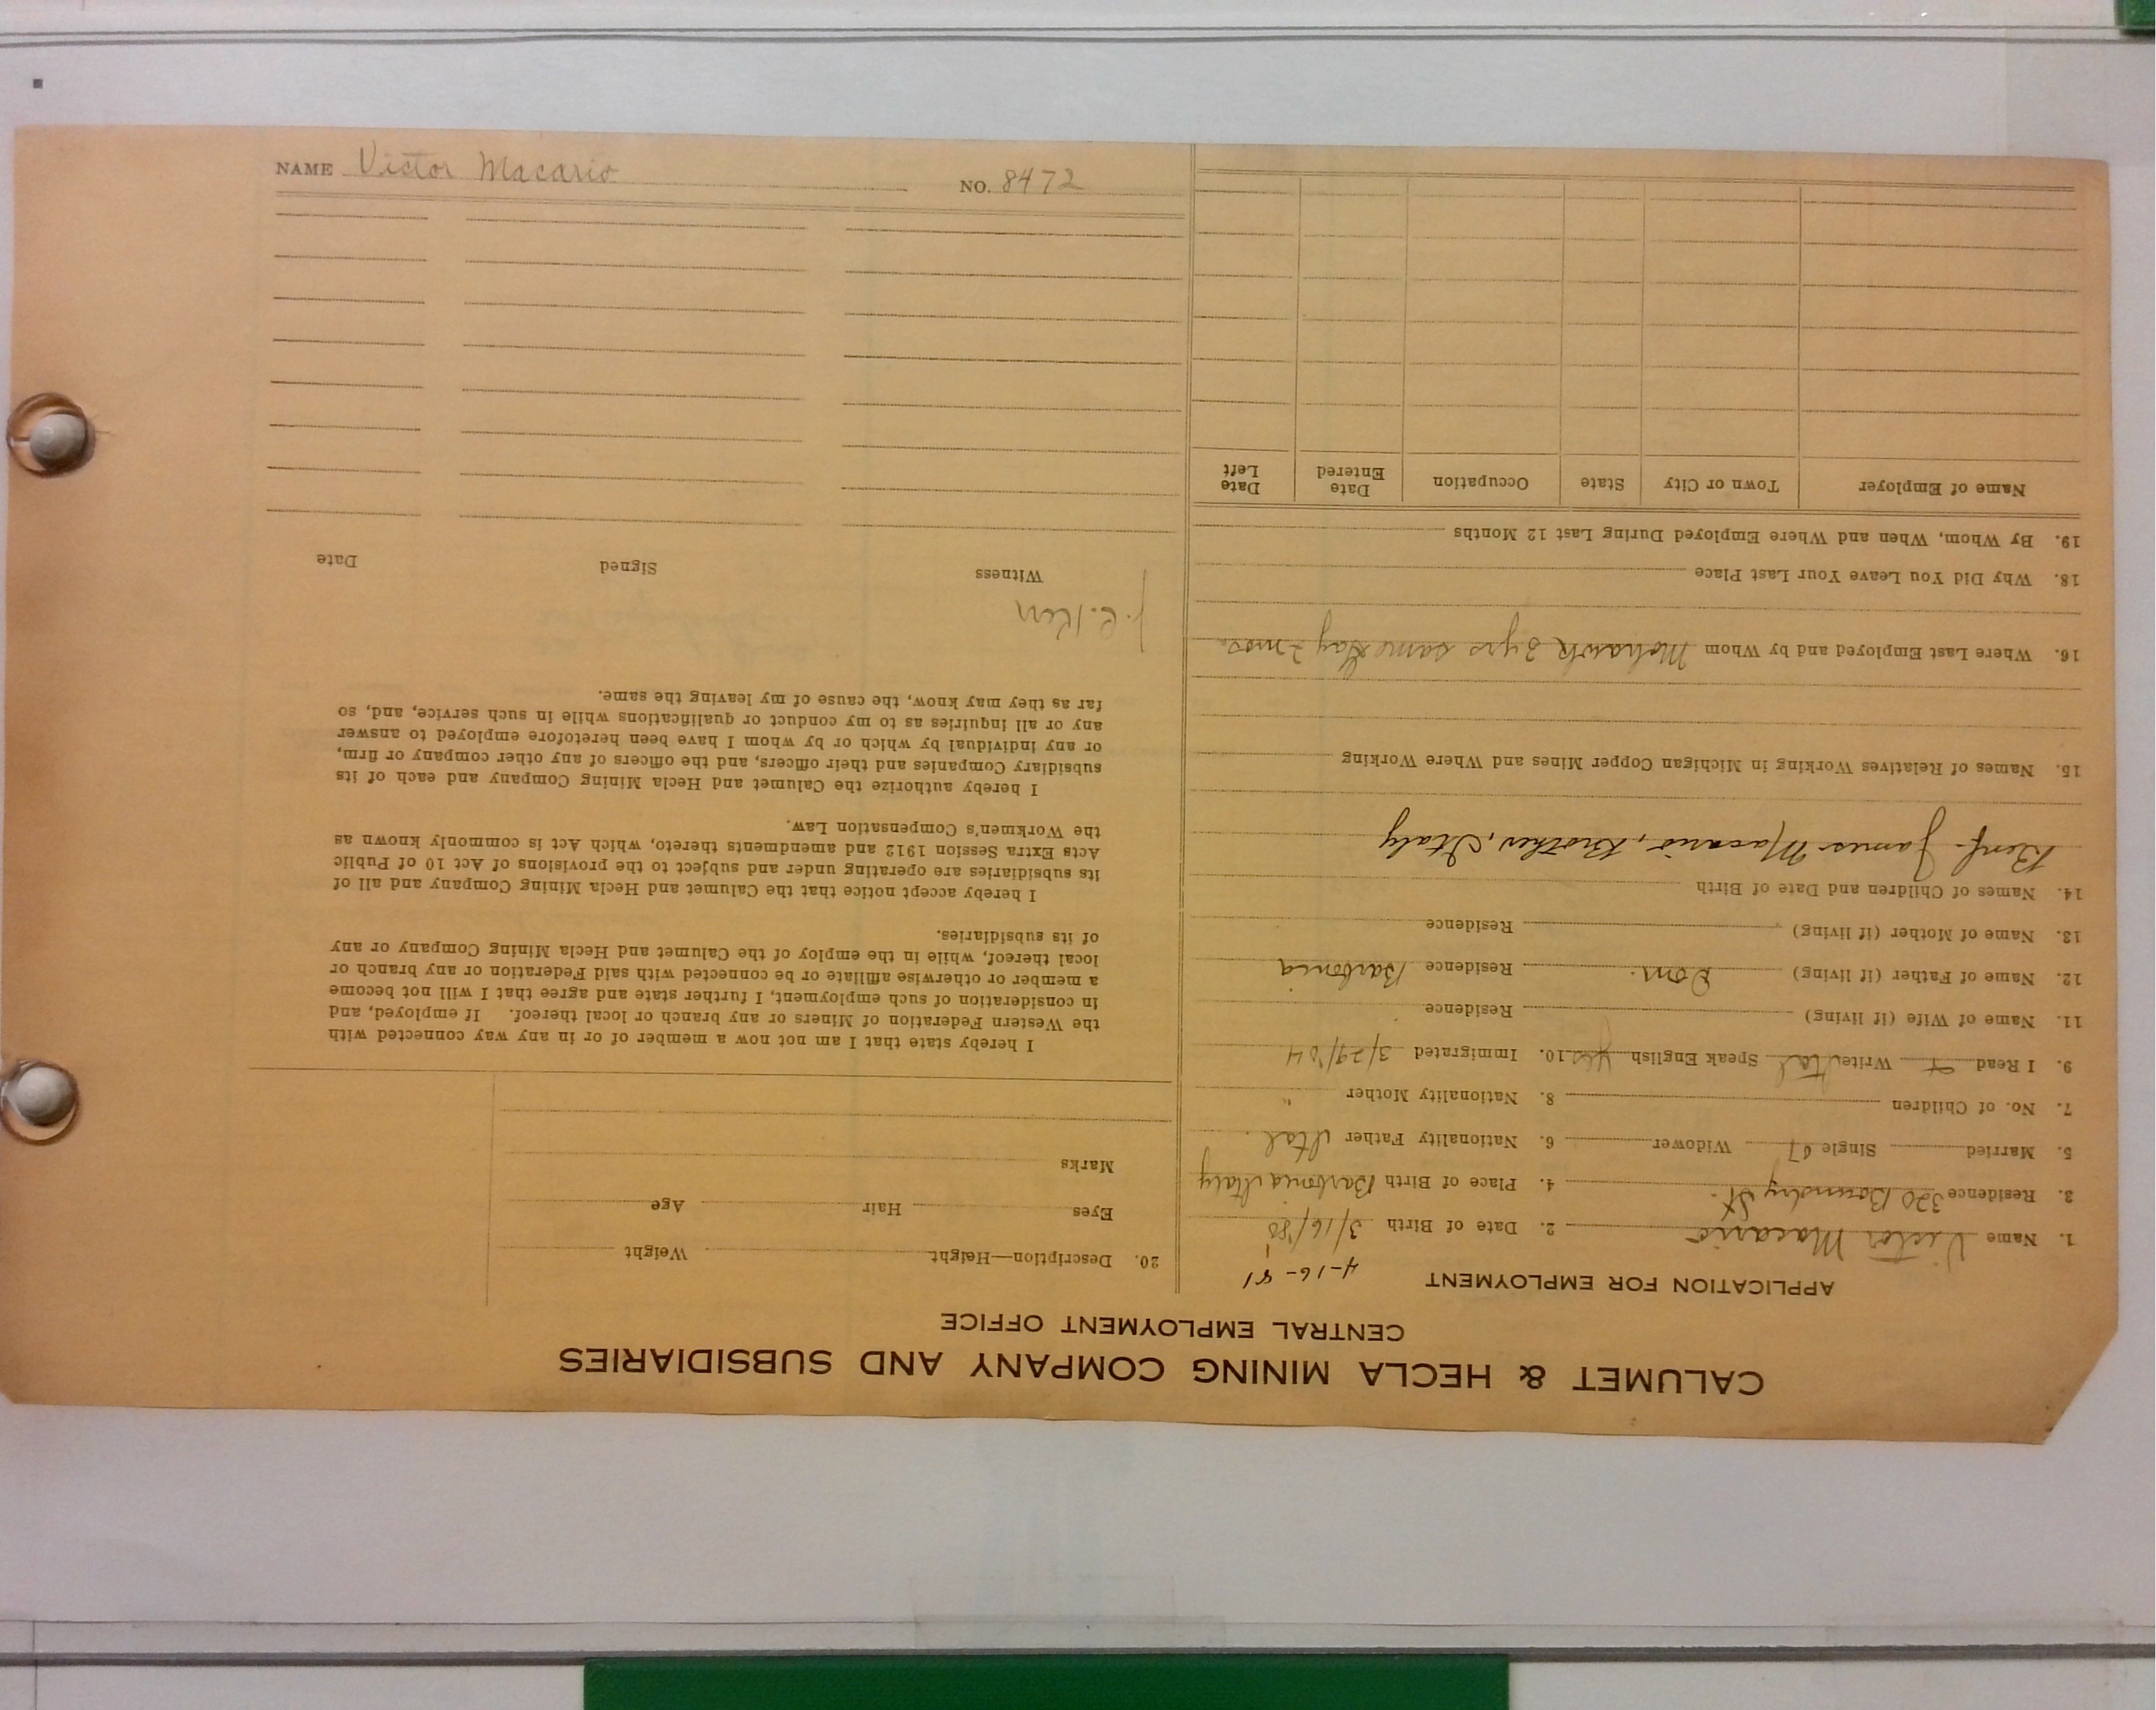 CALUMET & HECLA MINING COMPANY AND SUBSIDIARIES
CENTRAL EMPLOYMENT OFFICE
APPLICATION FOR EMPLOYMENT 4-16-81
1. Name Victor Macario 2. Date of Birth 3/16/80
3. Residence 320 Boundry St. 4. Place of Birth Barbonia Italy
5. Married Single Widower 6. Nationality Father Ital.
7. No. of Children 8. Nationality Mother "
9. I Read Write Ital Speak English yes 10. Immigrated 3/29/04
11. Name of Wife (if living) Residence
12. Name of Father (if living) Dom. Residence Barbonia
13. Name of Mother (if living) Residence
14. Names of Children and Date of Birth
Benf. James Macario, Brother, Italy
15. Names of Relatives Working in Michigan Copper Mines and Where Working
16. Where Last Employed and by Whom Mohawk 3 yrs same day 2 mos.
18. Why Did You Leave Your Last Place
19. By Whom, When and Where Employed During Last 12 Months
Name of Employer Town or City State Occupation Date Entered Date Left
20. Description—Height Weight
Eyes Hair Age
Marks
I hereby state that I am not now a member of or in any way connected with
the Western Federation of Miners or any branch or local thereof. If employed, and
in consideration of such employment, I further state and agree that I will not become
a member or otherwise affiliate or be connected with said Federation or any branch or
local thereof, while in the employ of the Calumet and Hecla Mining Company or any
of its subsidiaries.
I hereby accept notice that the Calumet and Hecla Mining Company and all of
its subsidiaries are operating under and subject to the provisions of Act 10 of Public
Acts Extra Session 1912 and amendments thereto, which Act is commonly known as
the Workmen's Compensation Law.
I hereby authorize the Calumet and Hecla Mining Company and each of its
subsidiary Companies and their officers, and the officers of any other company or firm,
or any individual by which or by whom I have been heretofore employed to answer
any or all inquiries as to my conduct or qualifications while in such service, and, so
far as they may know, the cause of my leaving the same.
Witness Signed Date
NAME Victor Macario NO. 8472